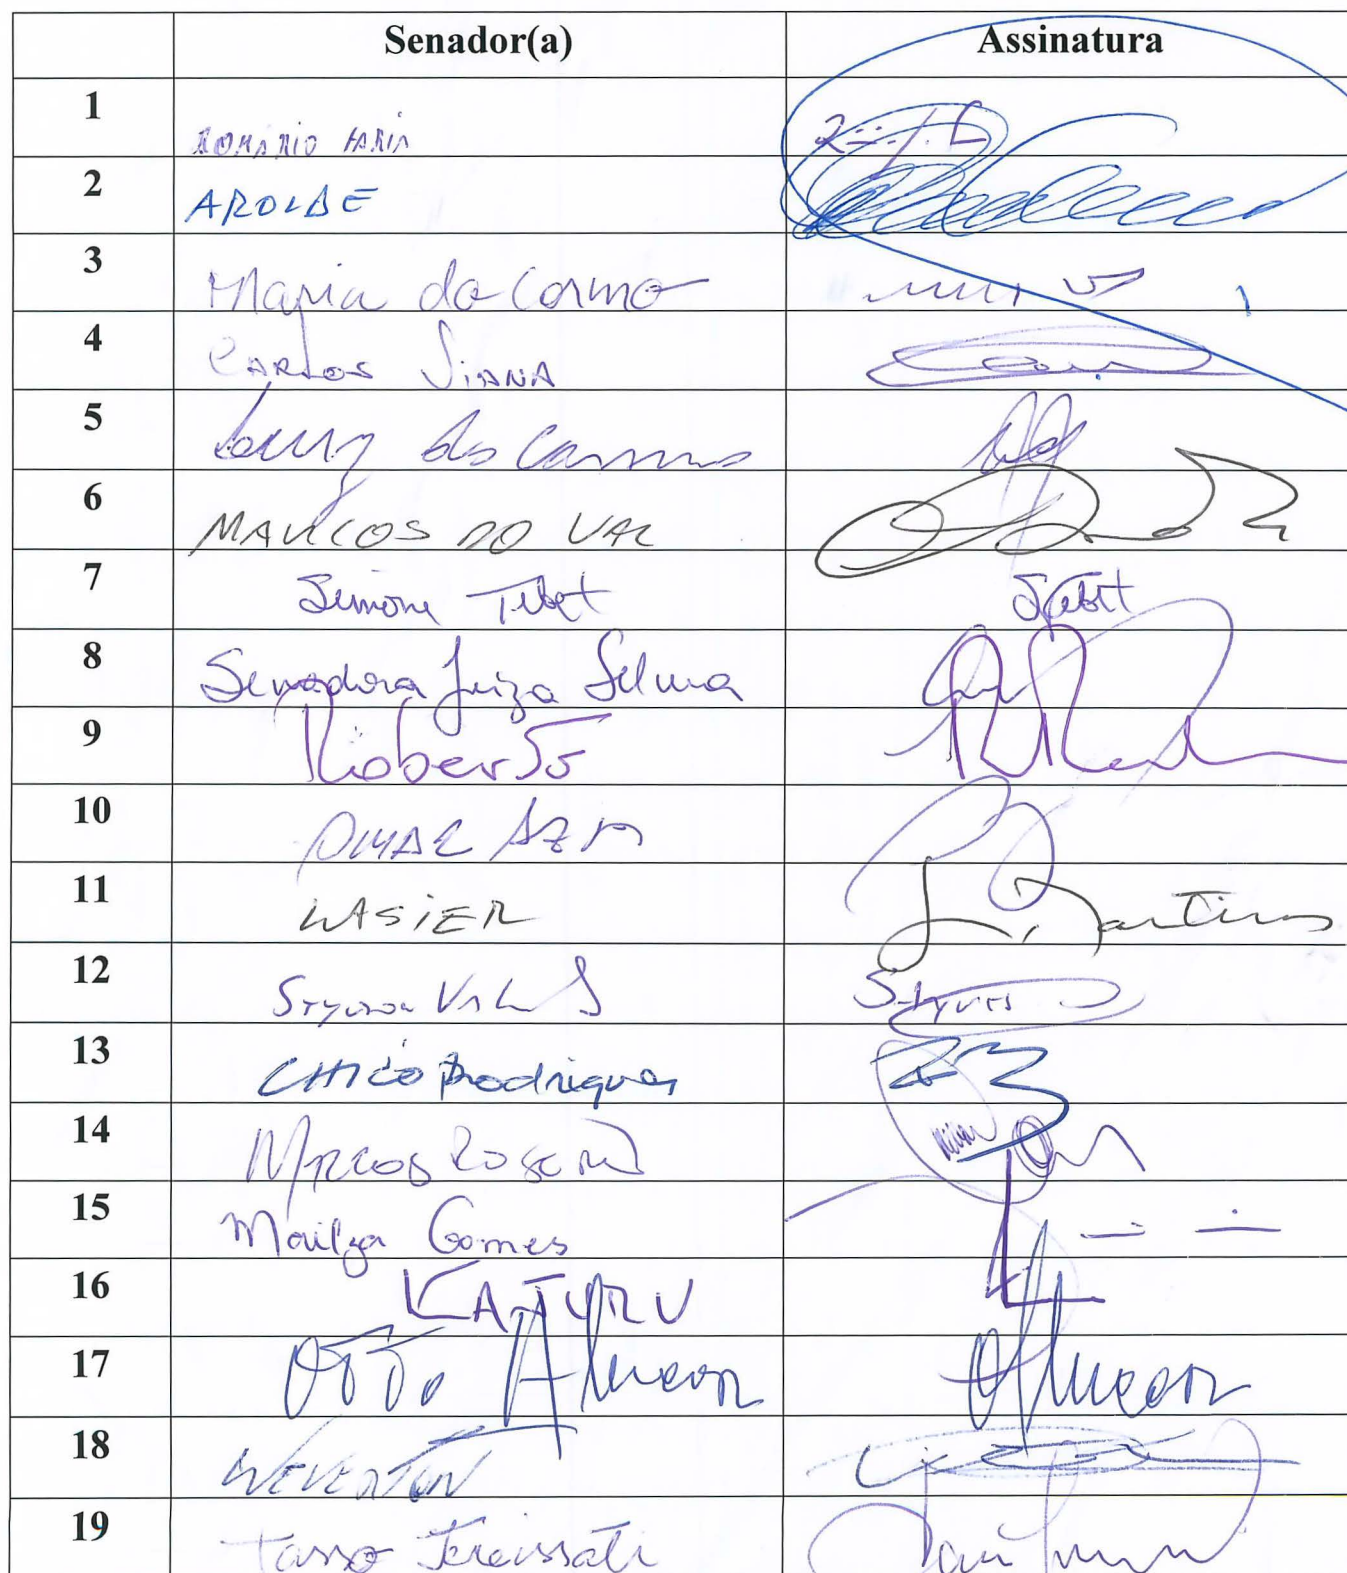 Senador(a) Assinatura
1 ROMÁRIO FARIA
2 AROLDE
3 Maria do Carmo
4 CARLOS VIANA
5 Luiz do Carmo
6 MARCOS DO VAL
7 Simone Tebet STebet
8 Senadora Juíza Selma
9 Roberto
10 OMAR AZIZ
11 LASIER L. Martins
12 Styvson VALS Styvs
13 CHICO Rodrigues
14 MARCOS ROGERIO
15 Mailza Gomes
16 KAJURU
17 OTTO Alencar OAlencar
18 WEVERTON
19 Tasso Jereissati